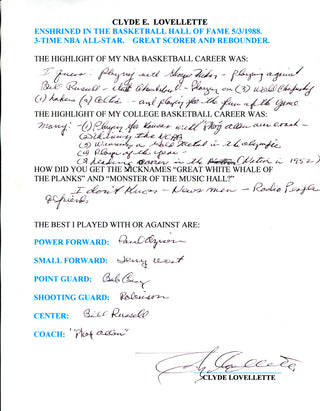 CLYDE E. LOVELLETTE
ENSHRINED IN THE BASKETBALL HALL OF FAME 5/3/1988.
3-TIME NBA ALL-STAR. GREAT SCORER AND REBOUNDER.
THE HIGHLIGHT OF MY NBA BASKETBALL CAREER WAS:
I guess: Playing with - Playing against
Bill Russell - - Playing on (3) World Championship
(1) Lakers (2) Celtics - and playing for the fun of the Game
THE HIGHLIGHT OF MY COLLEGE BASKETBALL CAREER WAS:
Many: - (1) Playing for Kansas with "Phog Allen our coach -
(2) Winning the NCAA
(3) Winning a Gold Medal in the Olympic
(4) Player of the year -
(5) Leading in the Nation in 1952)
HOW DID YOU GET THE NICKNAMES "GREAT WHITE WHALE OF
THE PLANKS" AND "MONSTER OF THE MUSIC HALL?"
I don't know - News men - Radio People
or friends
THE BEST I PLAYED WITH OR AGAINST ARE:
POWER FORWARD: Paul
SMALL FORWARD: Jerry West
POINT GUARD: Bob
SHOOTING GUARD: Robinson
CENTER: Bill Russell
COACH: "Phog Allen"
Lovellette
CLYDE LOVELLETTE